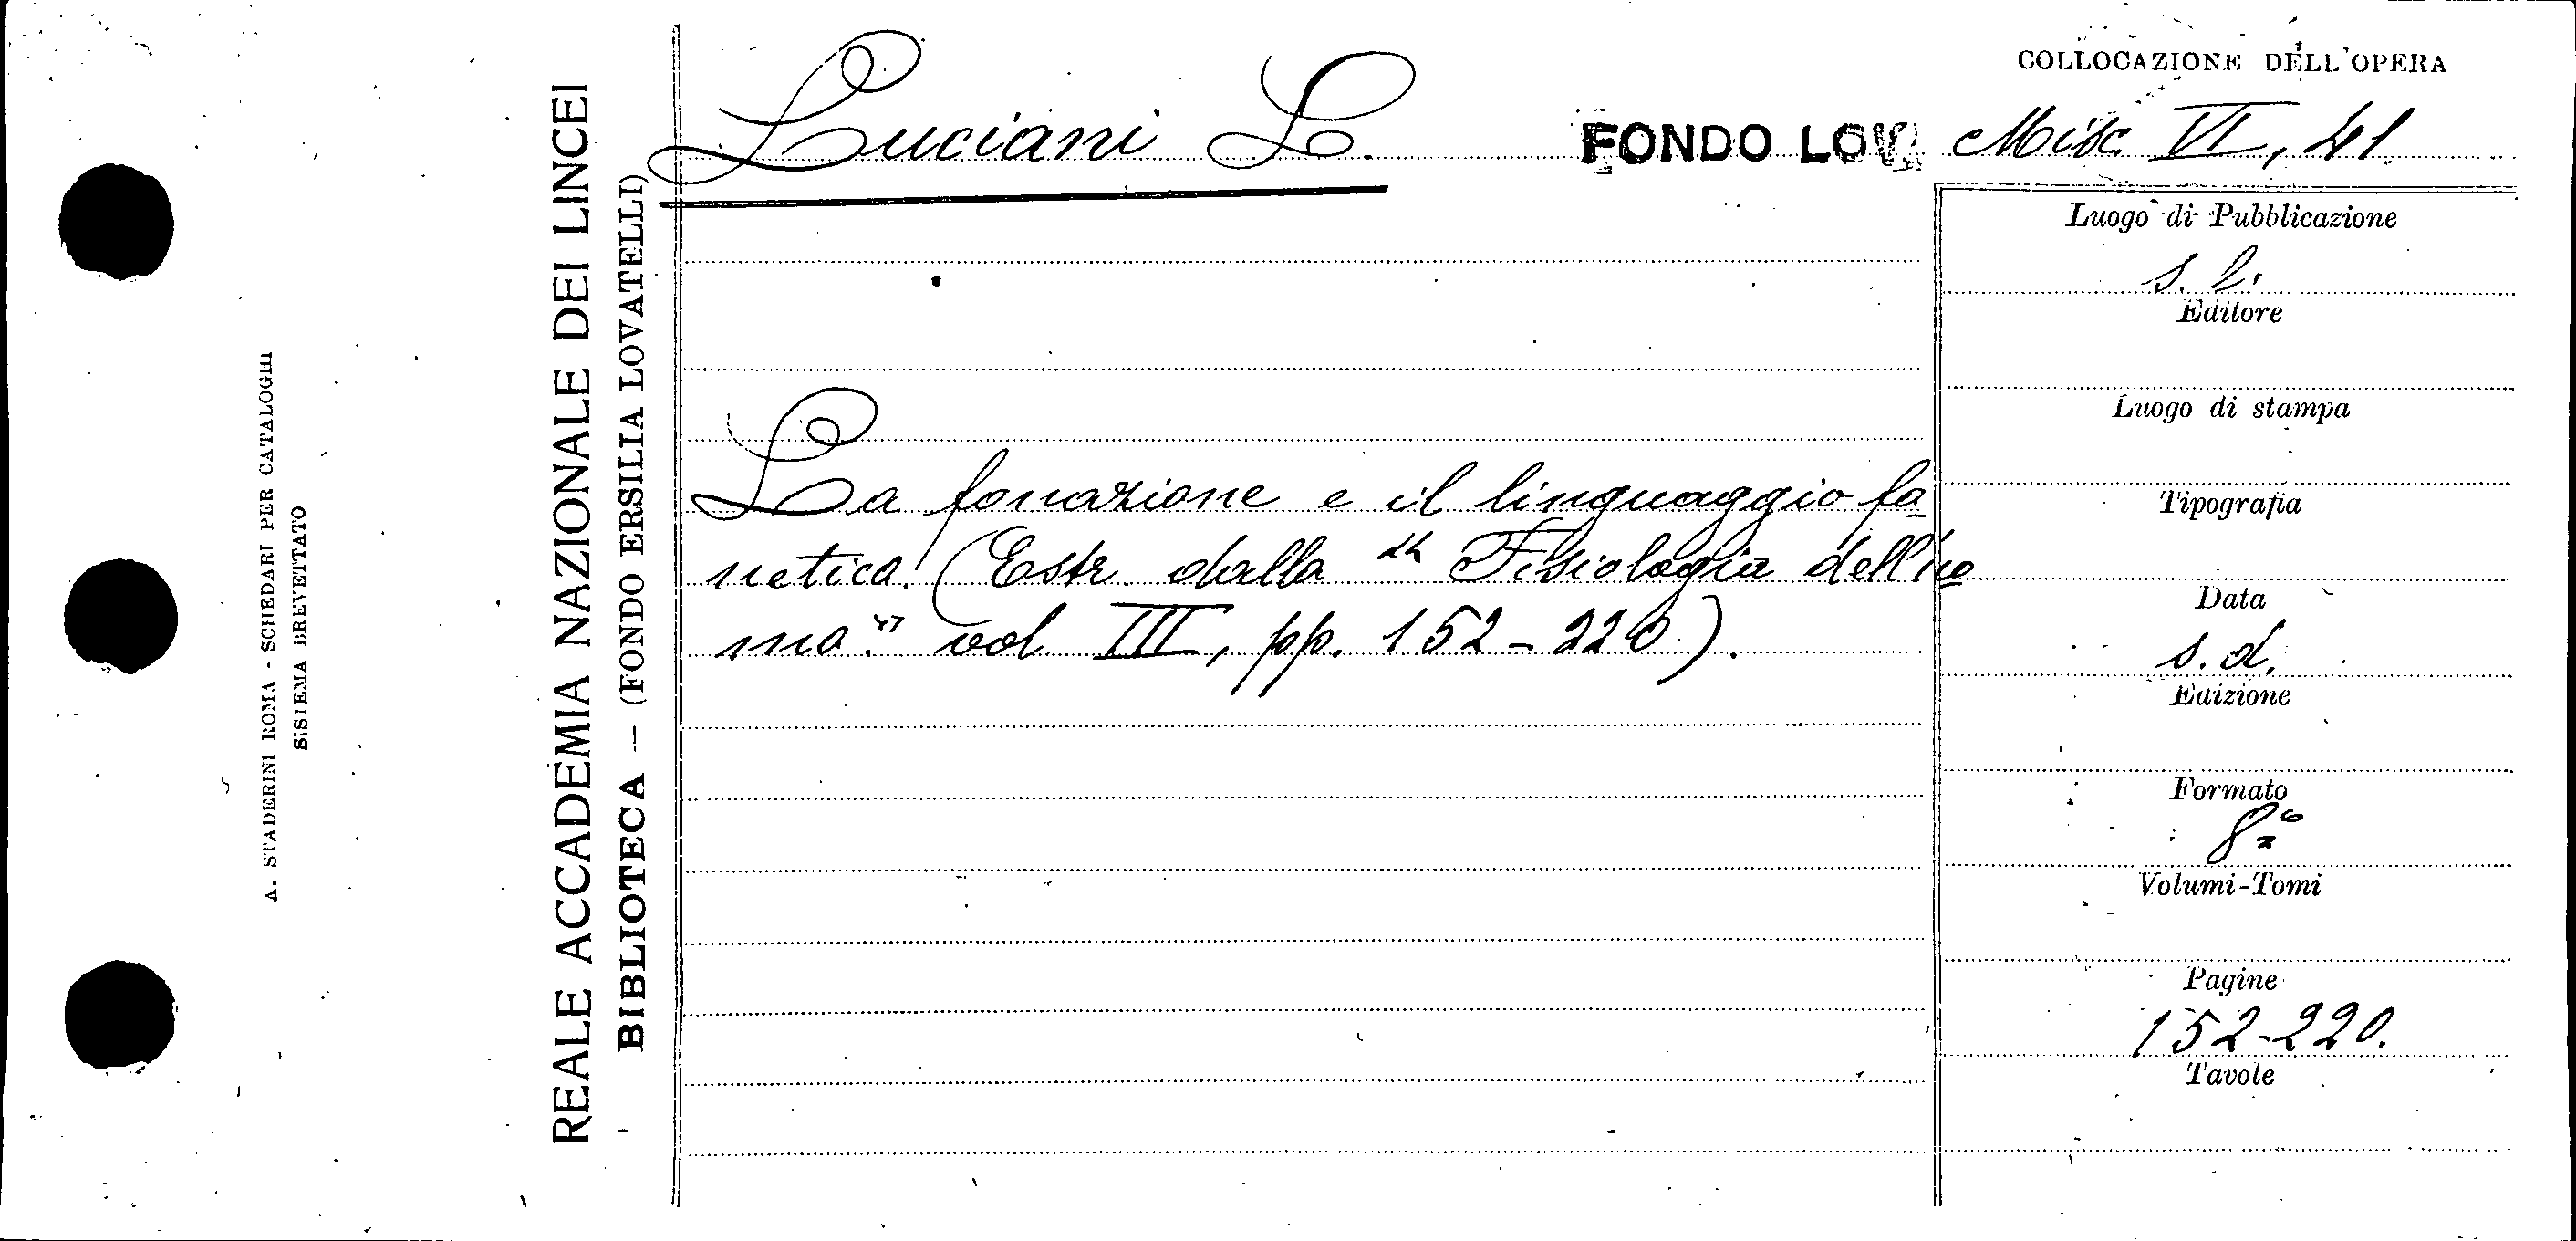 A. STADERINI ROMA - SCHEDARI PER CATALOGHI
SISTEMA BREVETTATO
REALE ACCADEMIA NAZIONALE DEI LINCEI
BIBLIOTECA — (FONDO ERSILIA LOVATELLI)
Luciani L.
FONDO LOV.
COLLOCAZIONE DELL'OPERA
Misc. VI, 41.
La fonazione e il linguaggio fo-
netico. (Estr. dalla "Fisiologia dell'uo-
mo." vol. III, pp. 152-220).
Luogo di Pubblicazione
s. l.
Editore
Luogo di stampa
Tipografia
Data
s. d.
Edizione
Formato
8°
Volumi-Tomi
Pagine
152-220.
Tavole